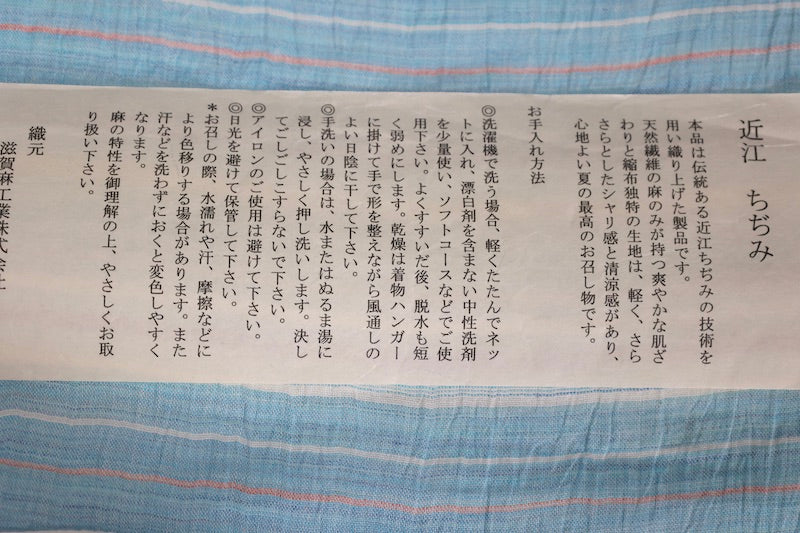 近江　ちぢみ
本品は伝統ある近江ちぢみの技術を
用い織り上げた製品です。
天然繊維の麻のみが持つ爽やかな肌ざ
わりと縮布独特の生地は、軽く、さら
さらとしたシャリ感と清涼感があり、
心地よい夏の最高のお召し物です。
お手入れ方法
◎洗濯機で洗う場合、軽くたたんでネッ
トに入れ、漂白剤を含まない中性洗剤
を少量使い、ソフトコースなどでご使
用下さい。よくすすいだ後、脱水も短
く弱めにします。乾燥は着物ハンガー
に掛けて手で形を整えながら風通しの
よい日陰に干して下さい。
◎手洗いの場合は、水またはぬるま湯に
浸し、やさしく押し洗いします。決し
てごしごしこすらないで下さい。
◎アイロンのご使用は避けて下さい。
◎日光を避けて保管して下さい。
*お召しの際、水濡れや汗、摩擦などに
より色移りする場合があります。また
汗などを洗わずにおくと変色しやすく
なります。
麻の特性を御理解の上、やさしくお取
り扱い下さい。
織元
滋賀麻工業株式会社